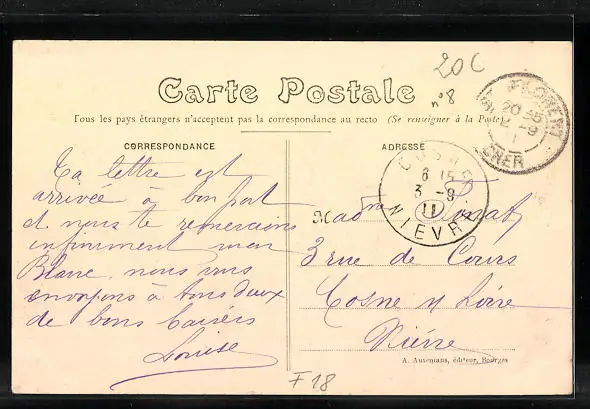 20C
n°8
Carte Postale
Tous les pays étrangers n'acceptent pas la correspondance au recto (Se renseigner à la Poste)
CORRESPONDANCE
ADRESSE
Ta lettre est
arrivée à bon port
et nous te remercions
infiniment mon
Blanc. nous vous
envoyons à tous deux
de bons baisers
Louise
COSNE
6 15
3 -9
11
NIEVRE
20 35
2 -9
CHER
Madme
3 rue de Cours
Cosne s/ Loire
Nièvre
A. Auxenians, éditeur, Bourges
F18